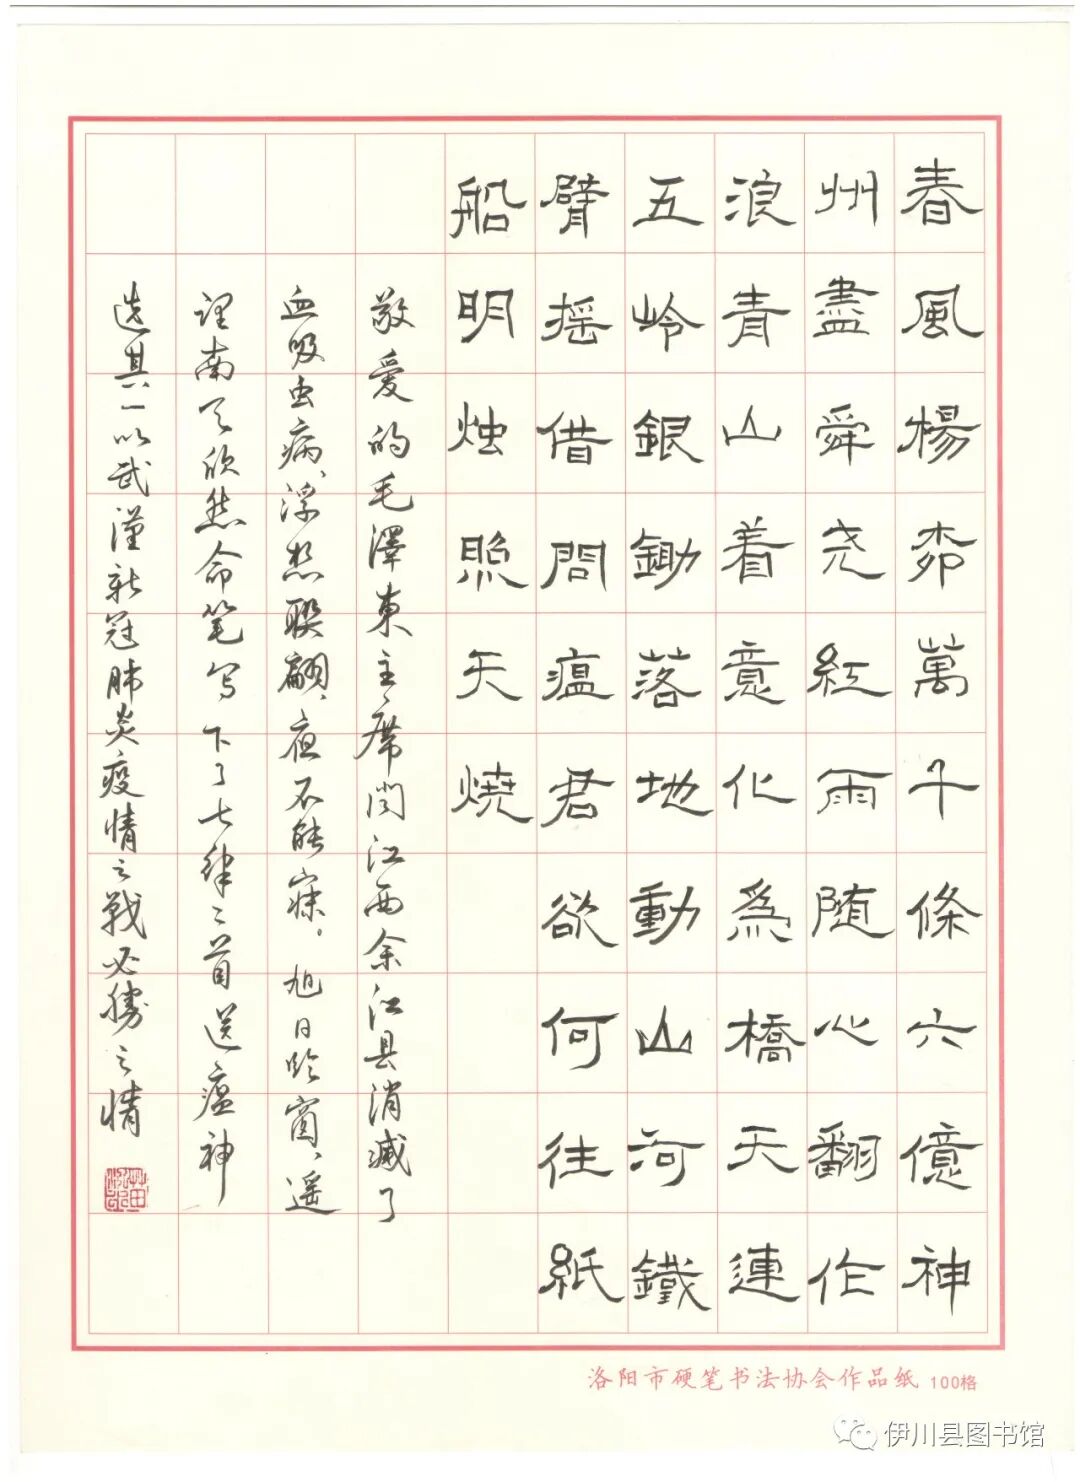 春風楊桺萬千條六億神
州盡舜尧紅雨随心翻作
浪青山着意化爲橋天連
五岭銀鋤落地動山河鐵
臂摇借問瘟君欲何往紙
船明烛照天燒
敬爱的毛澤東主席闻江西余江县消滅了
血吸虫病、浮想联翩、夜不能寐。旭日临窗、遥
望南天欣然命笔写下了七律二首送瘟神
选其一以武漢新冠肺炎疫情之戰必勝之情
洛阳市硬笔书法协会作品纸 100格
伊川县图书馆